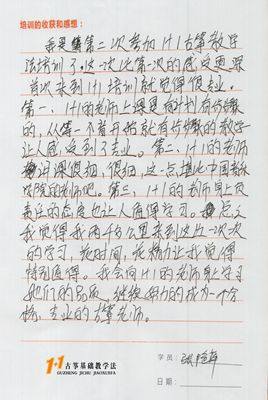 培训的收获和感想:
我是第二次参加1+1古筝教学
法培训了。这一次比第一次的感受更深
首次来到1+1培训就觉得很专业。
第一、1+1的老师上课是有计划有
的,从第一个首开始就有的教学
让人感受到了专业。第二、1+1的老师
讲课很细,很细,这一点堪比中国音乐
学院的老师吧。第三、1+1的老师身上认
真的态度也让人值得学习。总之
我觉得我两千多公里来到这一次
的学习,花时间,花精力让我觉得
特别值得。我会向1+1的老师身上学习
她们的品质,继续努力的成为一个合
格,专业的古筝老师。
学员:
1+1古筝基础教学法
GUZHENG JICHU JIAOXUEFA
日期: